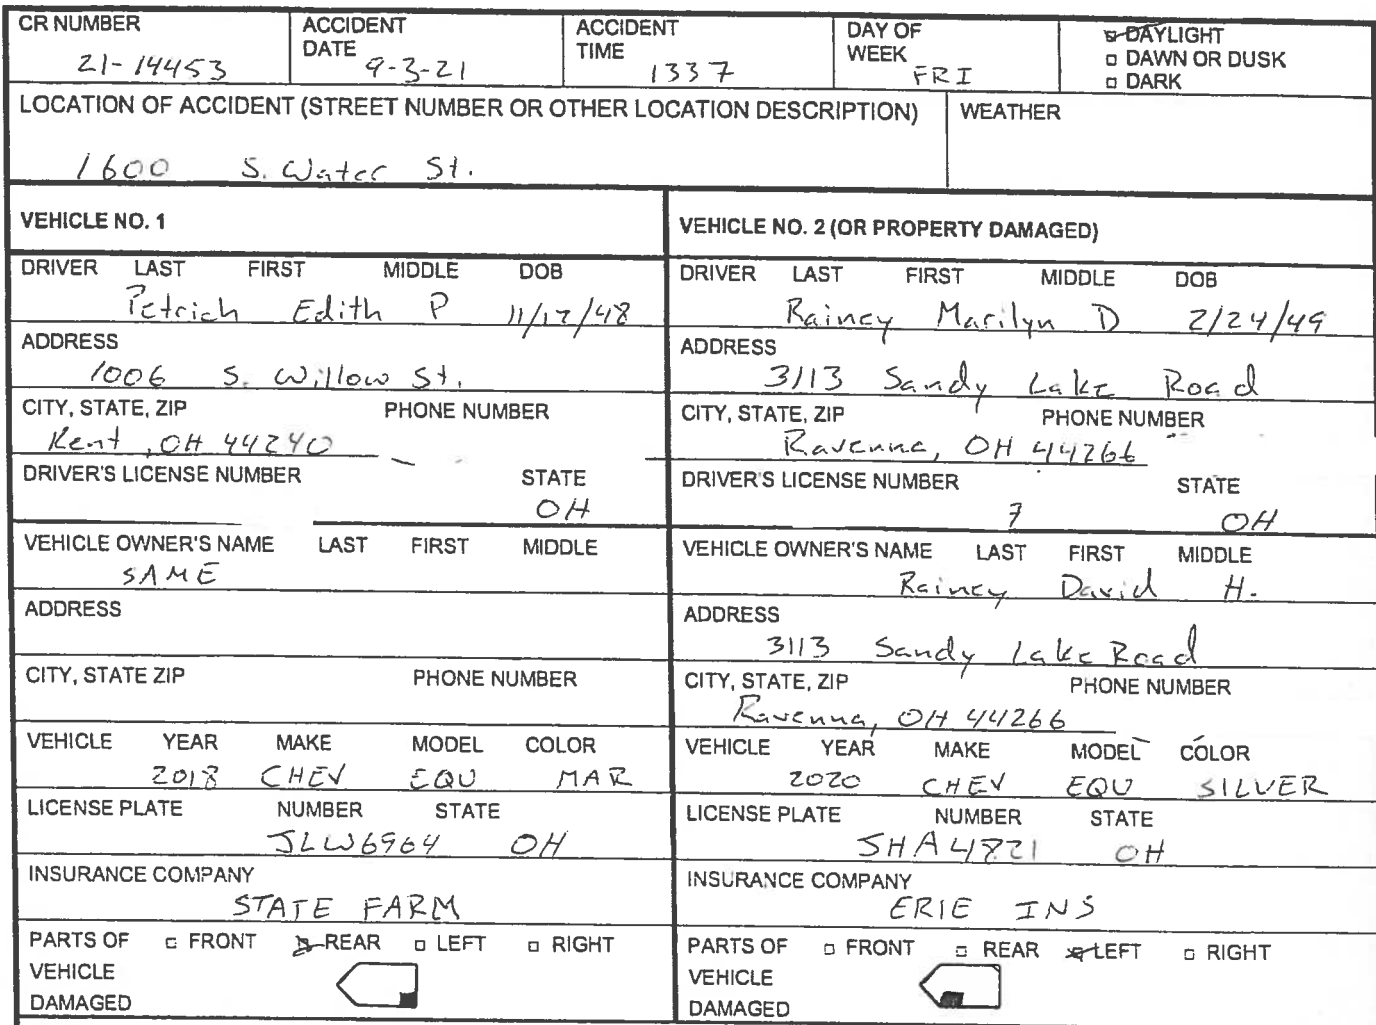 CR NUMBER ACCIDENT DATE ACCIDENT TIME DAY OF WEEK DAYLIGHT
21-14453 9-3-21 1337 FRI DAWN OR DUSK
DARK
LOCATION OF ACCIDENT (STREET NUMBER OR OTHER LOCATION DESCRIPTION) WEATHER
1600 S. Water St.
VEHICLE NO. 1
DRIVER LAST FIRST MIDDLE DOB
Petrich Edith P 11/17/48
ADDRESS
1006 S. Willow St.
CITY, STATE, ZIP PHONE NUMBER
Kent, OH 44240
DRIVER'S LICENSE NUMBER STATE
OH
VEHICLE OWNER'S NAME LAST FIRST MIDDLE
SAME
ADDRESS
CITY, STATE ZIP PHONE NUMBER
VEHICLE YEAR MAKE MODEL COLOR
2018 CHEV EQU MAR
LICENSE PLATE NUMBER STATE
JLW6964 OH
INSURANCE COMPANY
STATE FARM
PARTS OF VEHICLE DAMAGED FRONT REAR LEFT RIGHT
VEHICLE NO. 2 (OR PROPERTY DAMAGED)
DRIVER LAST FIRST MIDDLE DOB
Rainey Marilyn D 2/24/49
ADDRESS
3113 Sandy Lake Road
CITY, STATE, ZIP PHONE NUMBER
Ravenna, OH 44266
DRIVER'S LICENSE NUMBER STATE
7 OH
VEHICLE OWNER'S NAME LAST FIRST MIDDLE
Rainey David H.
ADDRESS
3113 Sandy Lake Road
CITY, STATE, ZIP PHONE NUMBER
Ravenna, OH 44266
VEHICLE YEAR MAKE MODEL COLOR
2020 CHEV EQU SILVER
LICENSE PLATE NUMBER STATE
SHA4821 OH
INSURANCE COMPANY
ERIE INS
PARTS OF VEHICLE DAMAGED FRONT REAR LEFT RIGHT